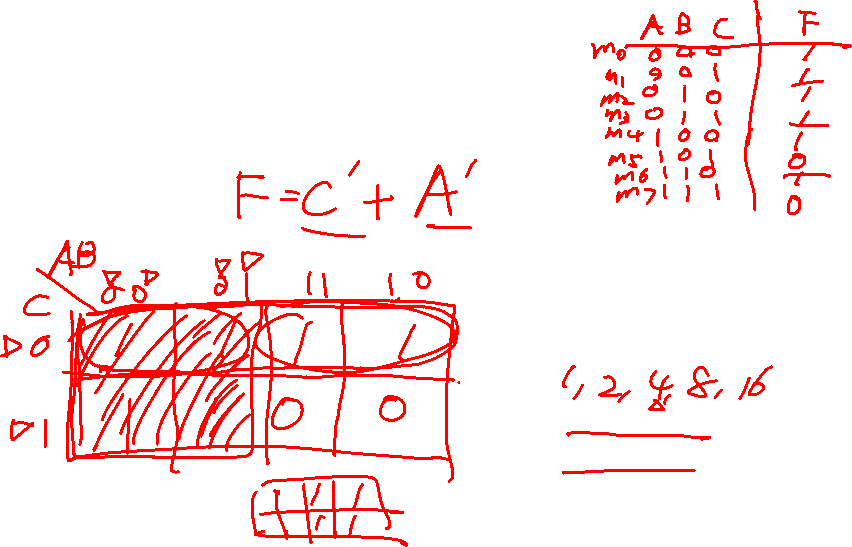 A B C F
m0 0 0 0 1
m1 0 0 1 1
m2 0 1 0 1
m3 0 1 1 1
m4 1 0 0 1
m5 1 0 1 0
m6 1 1 0 1
m7 1 1 1 0
F = C' + A'
AB
C 00 01 11 10
0 1 1 1 1
1 1 1 0 0
1, 2, 4, 8, 16
8
1 1 1 1